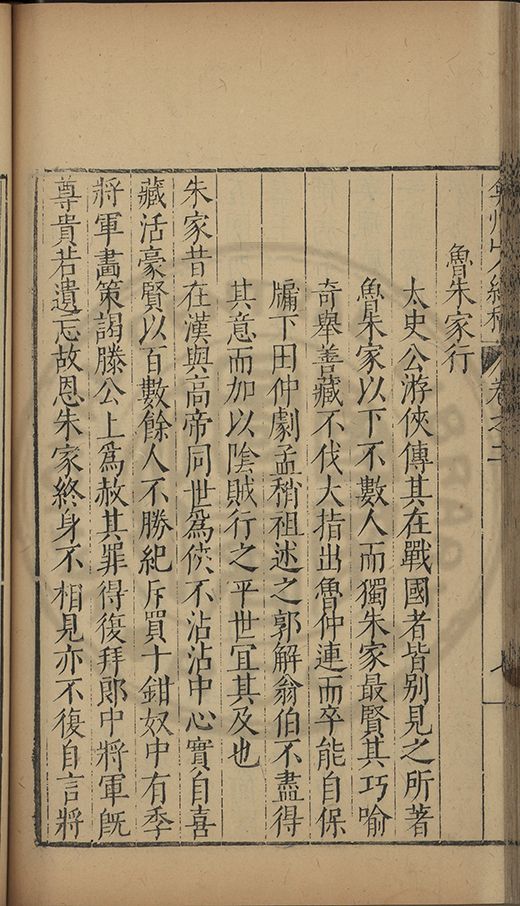 魯朱家行
太史公游俠傳其在戰國者皆别見之所著
魯朱家以下不數人而獨朱家最賢其巧喻
奇舉善藏不伐大指出魯仲連而卒能自保
牖下田仲劇孟稍祖述之郭解翁伯不盡得
其意而加以陰賊行之平世宜其及也
朱家昔在漢與高帝同世爲俠不沾沾中心實自喜
藏活豪賢以百數餘人不勝紀斥買十鉗奴中有季
將軍畫策謁滕公上爲赦其罪得復拜郎中將軍旣
尊貴若遺忘故恩朱家終身不相見亦不復自言將